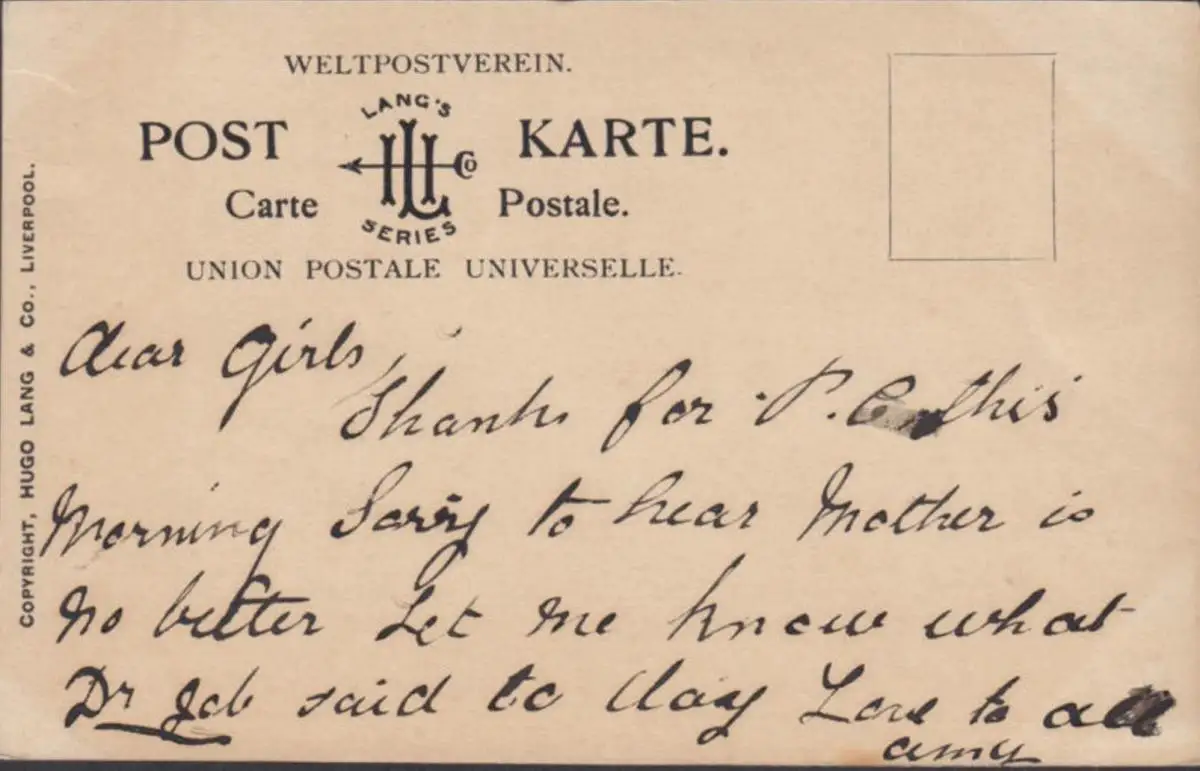 WELTPOSTVEREIN.
POST KARTE.
LANG'S
HLL Co
SERIES
Carte Postale.
UNION POSTALE UNIVERSELLE.
COPYRIGHT, HUGO LANG & Co., LIVERPOOL.
Dear Girls,
Thanks for P.C. this
Morning Sorry to hear Mother is
no better Let me know what
Dr Job said to day Love to all
amy